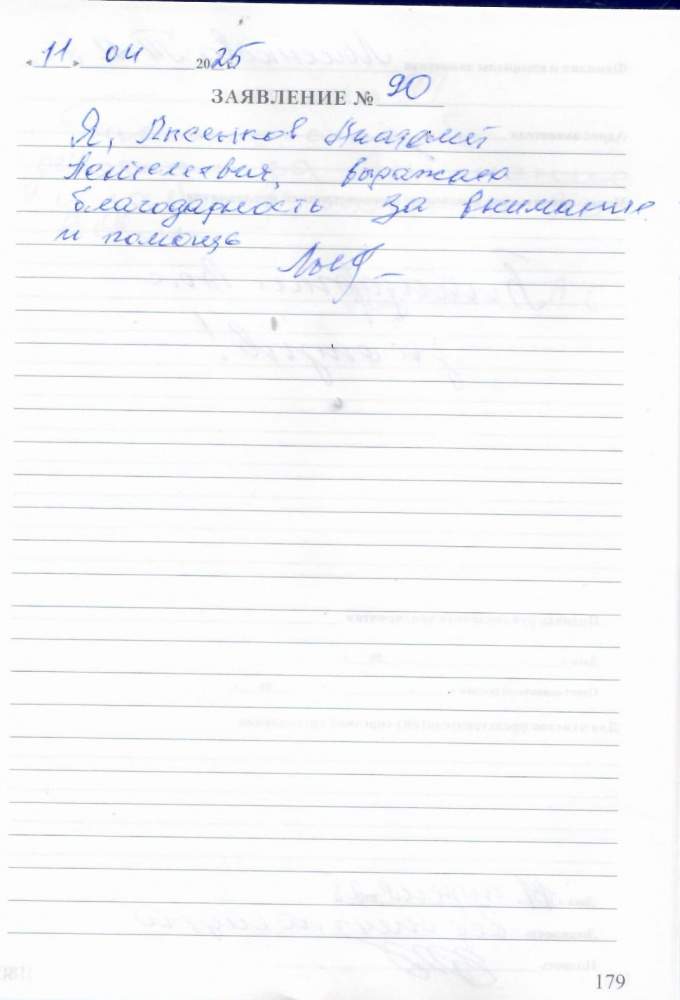 « 11 » 04 2025
ЗАЯВЛЕНИЕ № 90
Я, Анатолий
выражаю
благодарность за внимание
и помощь
179